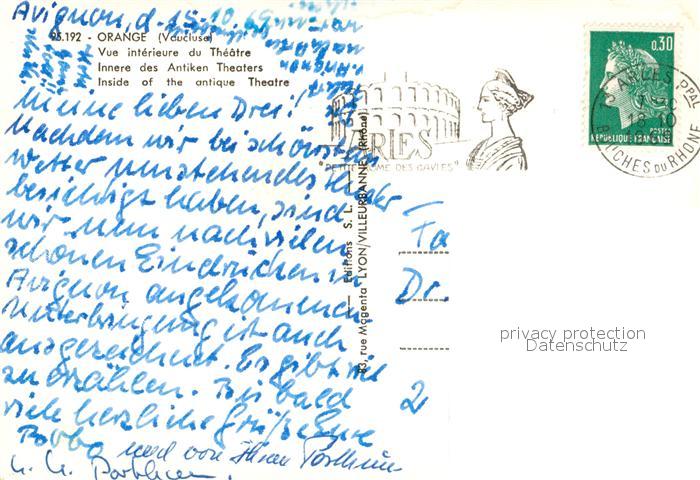 Avignon, d. 15.10.69
95.192 - ORANGE (Vaucluse)
Vue intérieure du Théâtre
Innere des Antiken Theaters
Inside of the antique Theatre
Meine lieben Drei!
Nachdem wir bei schönstem
Wetter umstehendes Theater
besichtigt haben, sind
wir nun nach vielen
schönen Eindrücken in
Avignon angekommen
Unterbringung ist auch
ausgezeichnet. Es gibt viel
zu erzählen. Bis bald
viele herzliche Grüße Eure
und von Ihrem
ARLES
"PETITE ROME DES GAULES"
ARLES PPAL
13-10
BOUCHES DU RHONE
0,30
POSTES
REPUBLIQUE FRANÇAISE
Editions S. L.
83, rue Magenta LYON/VILLEURBANNE (Rhône)
Fa
Dr.
2
privacy protection
Datenschutz